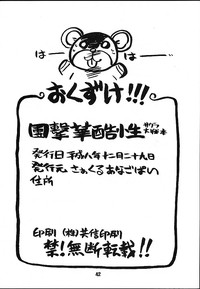 はー はー
おくずけ!!!
国撃華酷生
発行日 平成八年十二月二十九日
発行元 さぁくるあなごぱい
住所
印刷 (株)共信印刷
禁!無断転載!!
42